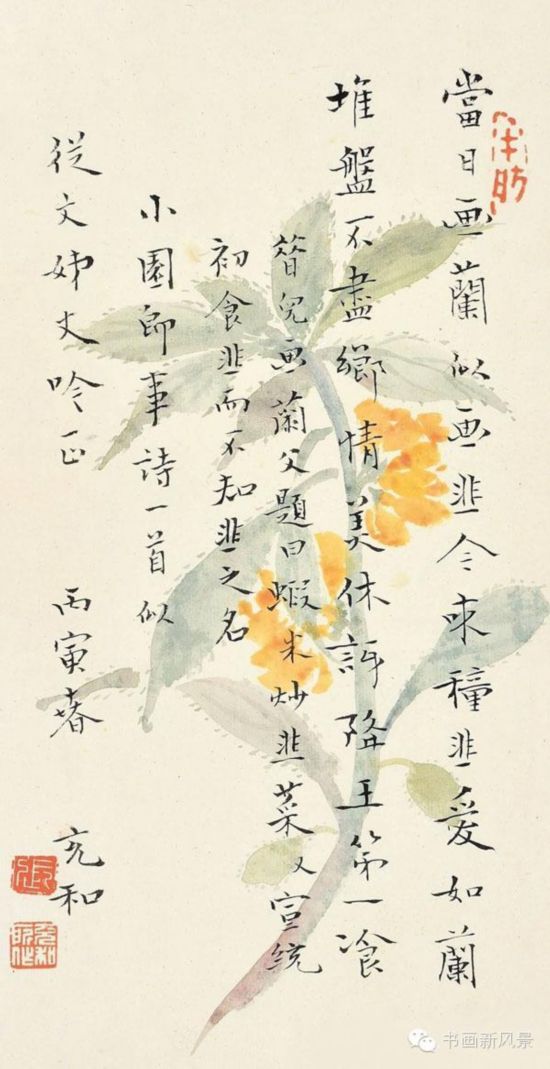 當日画蘭似画韭今来種韭爱如蘭
堆盤不盡鄉情美休訝降王第一飡
兒画蘭父題曰蝦米炒韭菜又宣統
初食韭而不知韭之名
小園即事詩一首似
從文姊丈吟正
丙寅春 充和
书画新风景